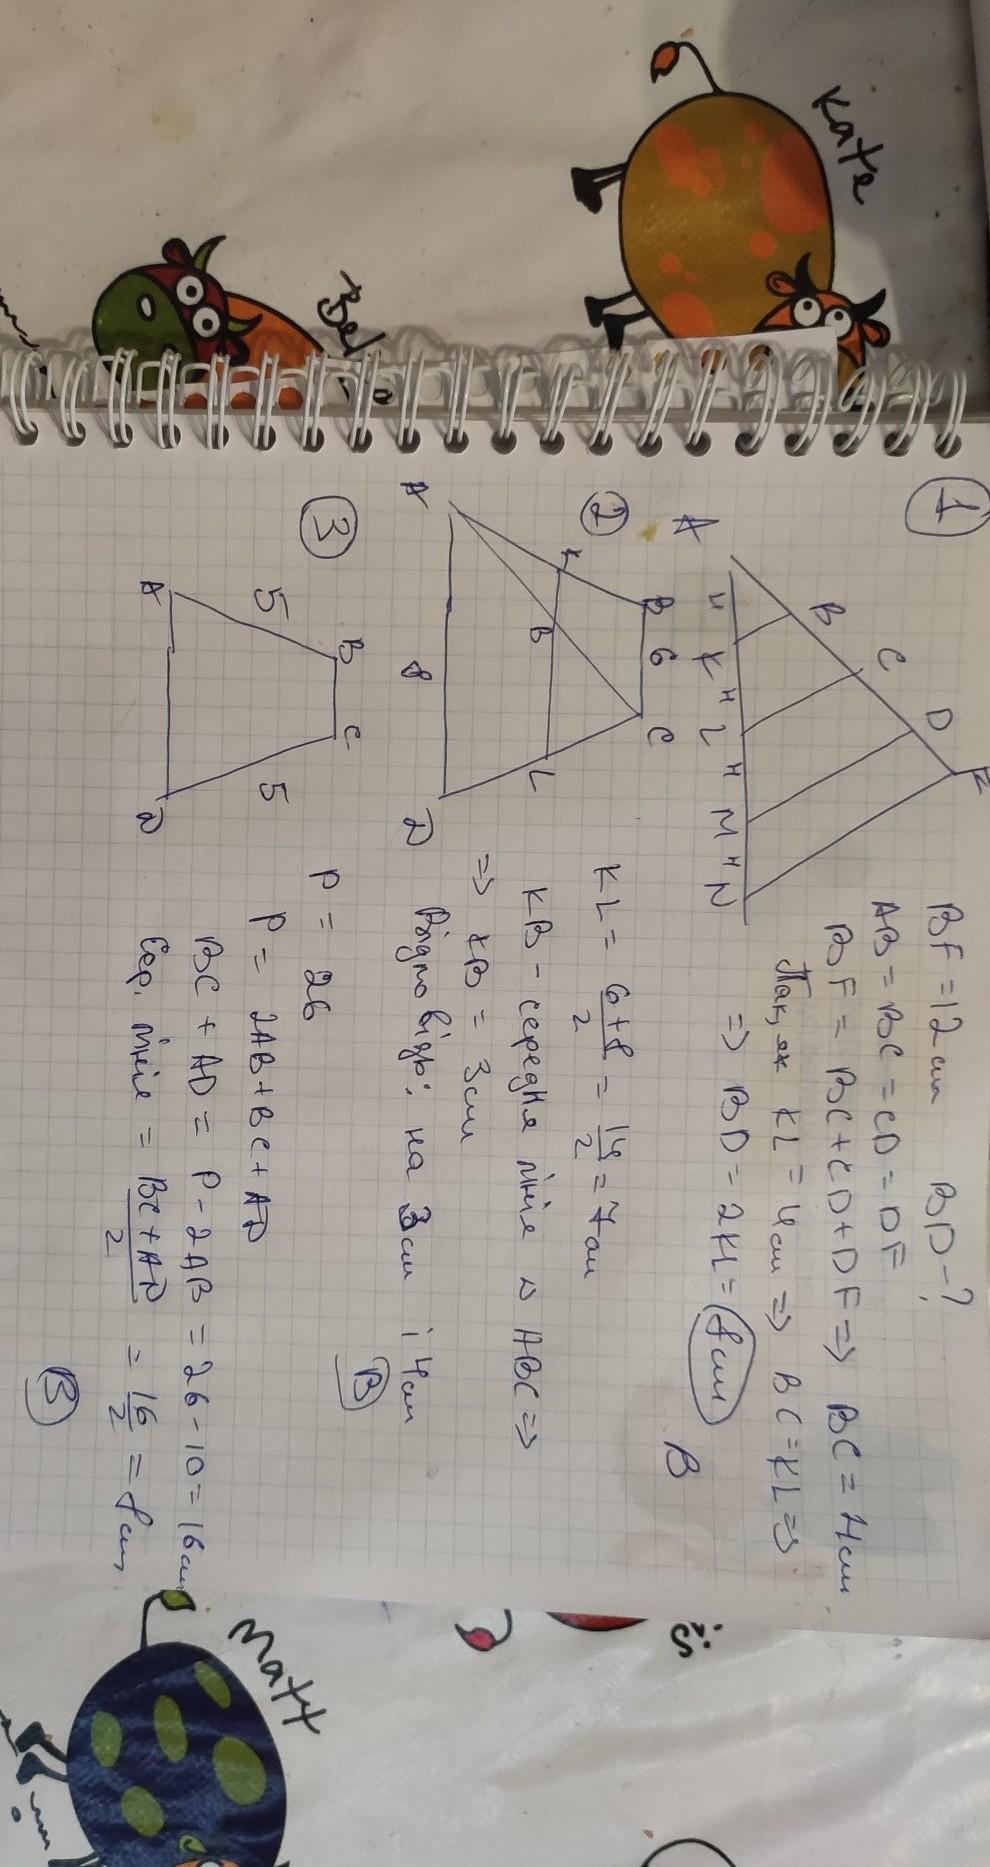 Kate
Bel
1
A
B
C
D
F
4
K
4
L
4
M
4
N
BF = 12 см BD - ?
AB = BC = CD = DF
BF = BC + CD + DF => BC = 4 см
Так, як KL = 4 см => BC = KL =>
=> BD = 2KL = 8 см
B
2
A
K
B
6
C
B
L
8
D
KL = 6+8/2 = 14/2 = 7 см
KB - середня лінія ABC =>
=> KB = 3 см
Відповідь: на 3 см і 4 см
B
3
A
5
B
C
5
D
P = 26
P = 2AB + BC + AD
BC + AD = P - 2AB = 26 - 10 = 16 см
Сер. лінія = BC + AD/2 = 16/2 = 8 см
B
Matt
is